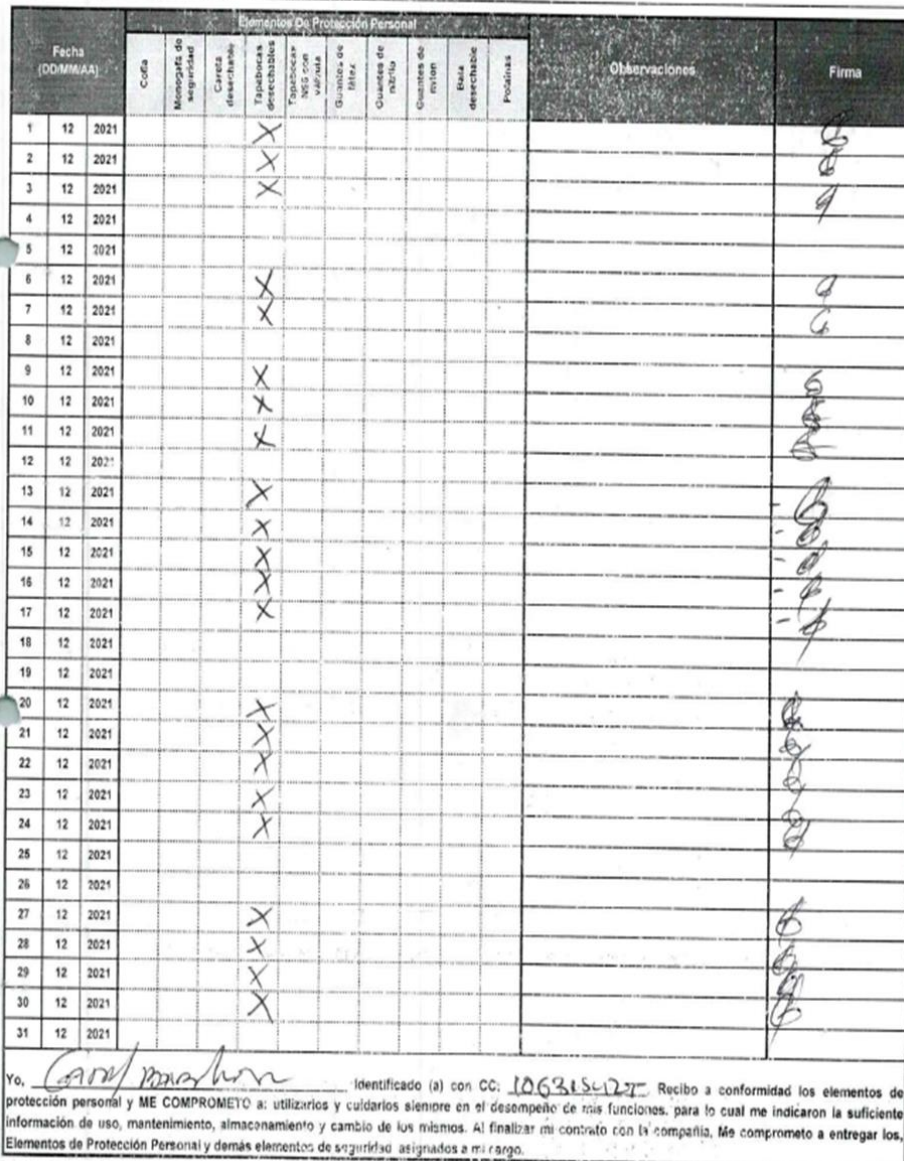 Elementos De Protección Personal
Fecha
(DD/MM/AA)
Cofia
Monogafa de seguridad
Careta desechable
Tapabocas desechables
Tapabocas N95 con válvula
Guantes de látex
Guantes de nitrilo
Guantes de
Bata desechable
Polainas
Observaciones
Firma
1 12 2021 X
2 12 2021 X
3 12 2021 X
4 12 2021
5 12 2021
6 12 2021 X
7 12 2021 X
8 12 2021
9 12 2021 X
10 12 2021 X
11 12 2021 X
12 12 2021
13 12 2021 X
14 12 2021 X
15 12 2021 X
16 12 2021 X
17 12 2021 X
18 12 2021
19 12 2021
20 12 2021 X
21 12 2021 X
22 12 2021 X
23 12 2021 X
24 12 2021 X
25 12 2021
26 12 2021
27 12 2021 X
28 12 2021 X
29 12 2021 X
30 12 2021 X
31 12 2021
Yo, Identificado (a) con CC: Recibo a conformidad los elementos de
protección personal y ME COMPROMETO a: utilizarlos y cuidarlos siempre en el desempeño de mis funciones, para lo cual me indicaron la suficiente
información de uso, mantenimiento, almacenamiento y cambio de los mismos. Al finalizar mi contrato con la compañía, Me comprometo a entregar los,
Elementos de Protección Personal y demás elementos de seguridad asignados a mi cargo.